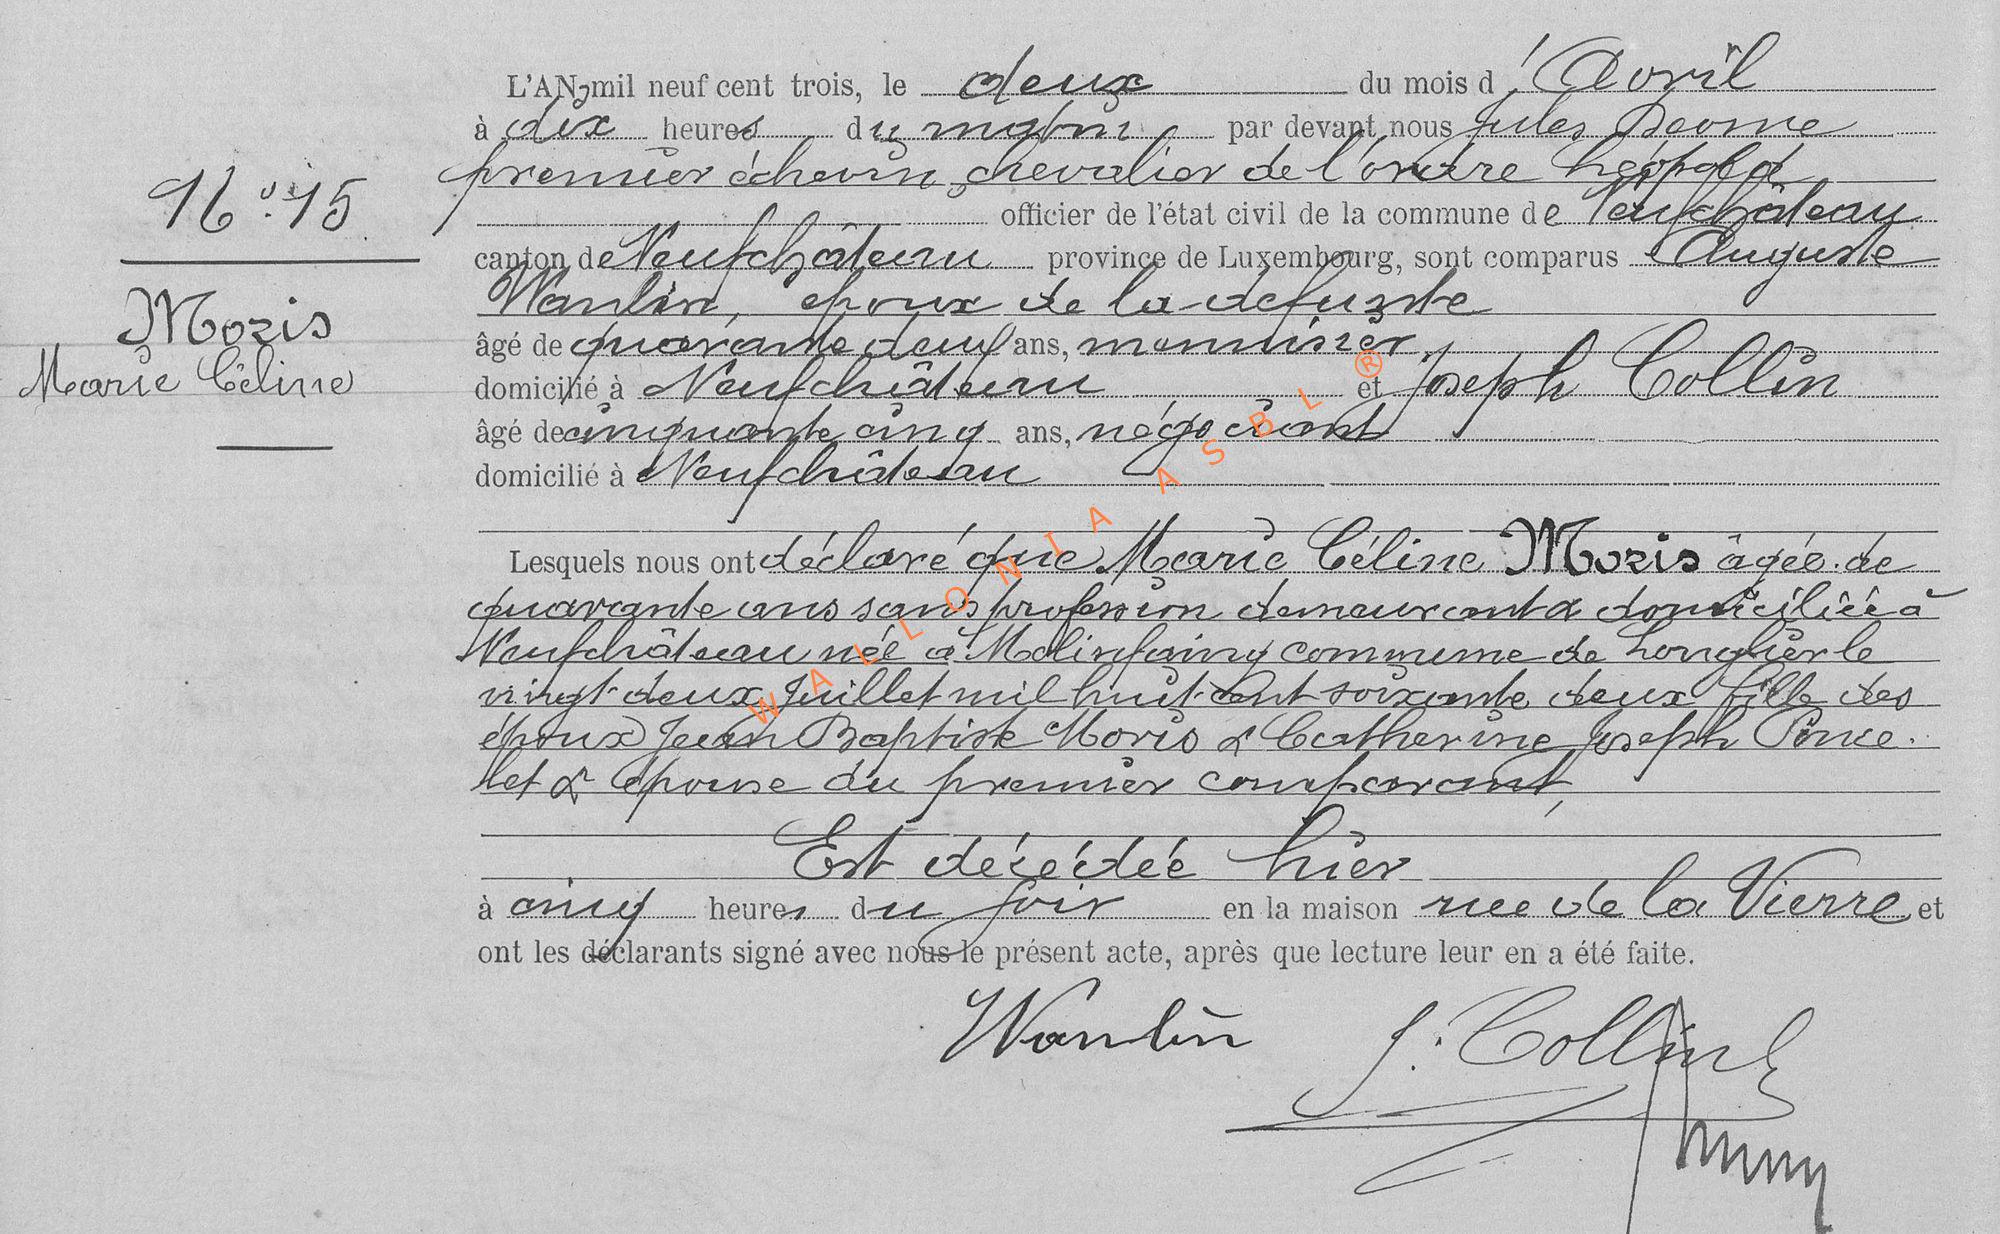 L'AN mil neuf cent trois, le deux du mois d'Avril
à dix heures du matin par devant nous Jules
premier échevin, chevalier de l'ordre Léopold
officier de l'état civil de la commune de Neufchâteau
N° 15
canton de Neufchâteau province de Luxembourg, sont comparus Auguste
Wanlin, époux de la defunte
Moris
Marie Céline
âgé de quarante deux ans, menuisier,
domicilié à Neufchâteau et Joseph Collin
âgé de cinquante cinq ans, négociant
domicilié à Neufchâteau
Lesquels nous ont déclaré que Marie Céline Moris âgée de
quarante ans sans profession demeurant & domiciliée à
Neufchâteau née à Molinfaing commune de Longlier le
vingt-deux Juillet mil huit-cent soixante deux fille des
époux Jean Baptiste Moris & Catherine Joseph Ponce-
let & épouse du premier comparant,
Est décédée hier
à cinq heures du soir en la maison rue de la Vierre et
ont les déclarants signé avec nous le présent acte, après que lecture leur en a été faite.
Wanlin J. Collin
WALLONIA ASBL ®